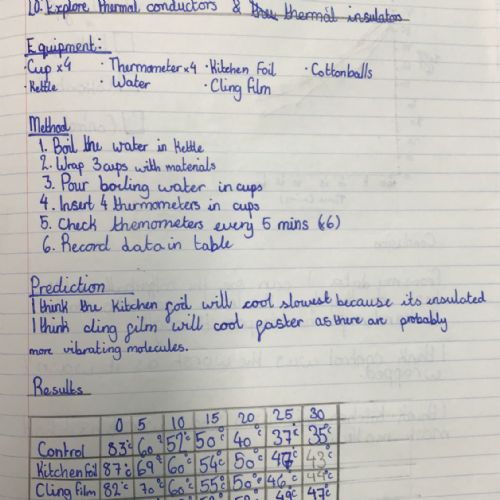 LO: Explore thermal conductors & thermal insulators
Equipment:
· Cup x4 · Thermometer x4 · Kitchen Foil · Cottonballs
· Kettle · Water · Cling film
Method
1. Boil the water in Kettle
2. Wrap 3 cups with materials
3. Pour boiling water in cups
4. Insert 4 thurmometers in cups
5. Check themometers every 5 mins (x6)
6. Record data in table
Prediction
I think the Kitchen foil will cool slowest because its insulated
I think cling film will cool faster as there are probably
more vibrating molecules.
Results
0 5 10 15 20 25 30
Control 83°c 60° 52°c 50°c 40°c 37°c 35°c
Kitchen Foil 87°c 69° 60°c 54°c 50°c 43°c
Cling Film 82°c 70°c 60°c 55°c 50°c 46°c
49°c 47°c